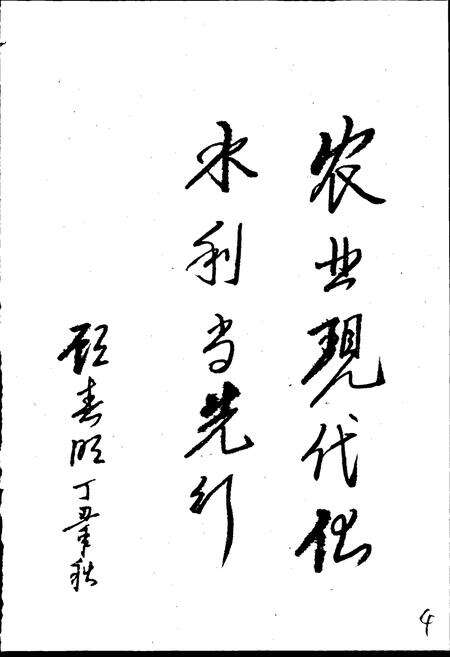 农业现代化
水利当先行
顾春明 丁丑年秋
4